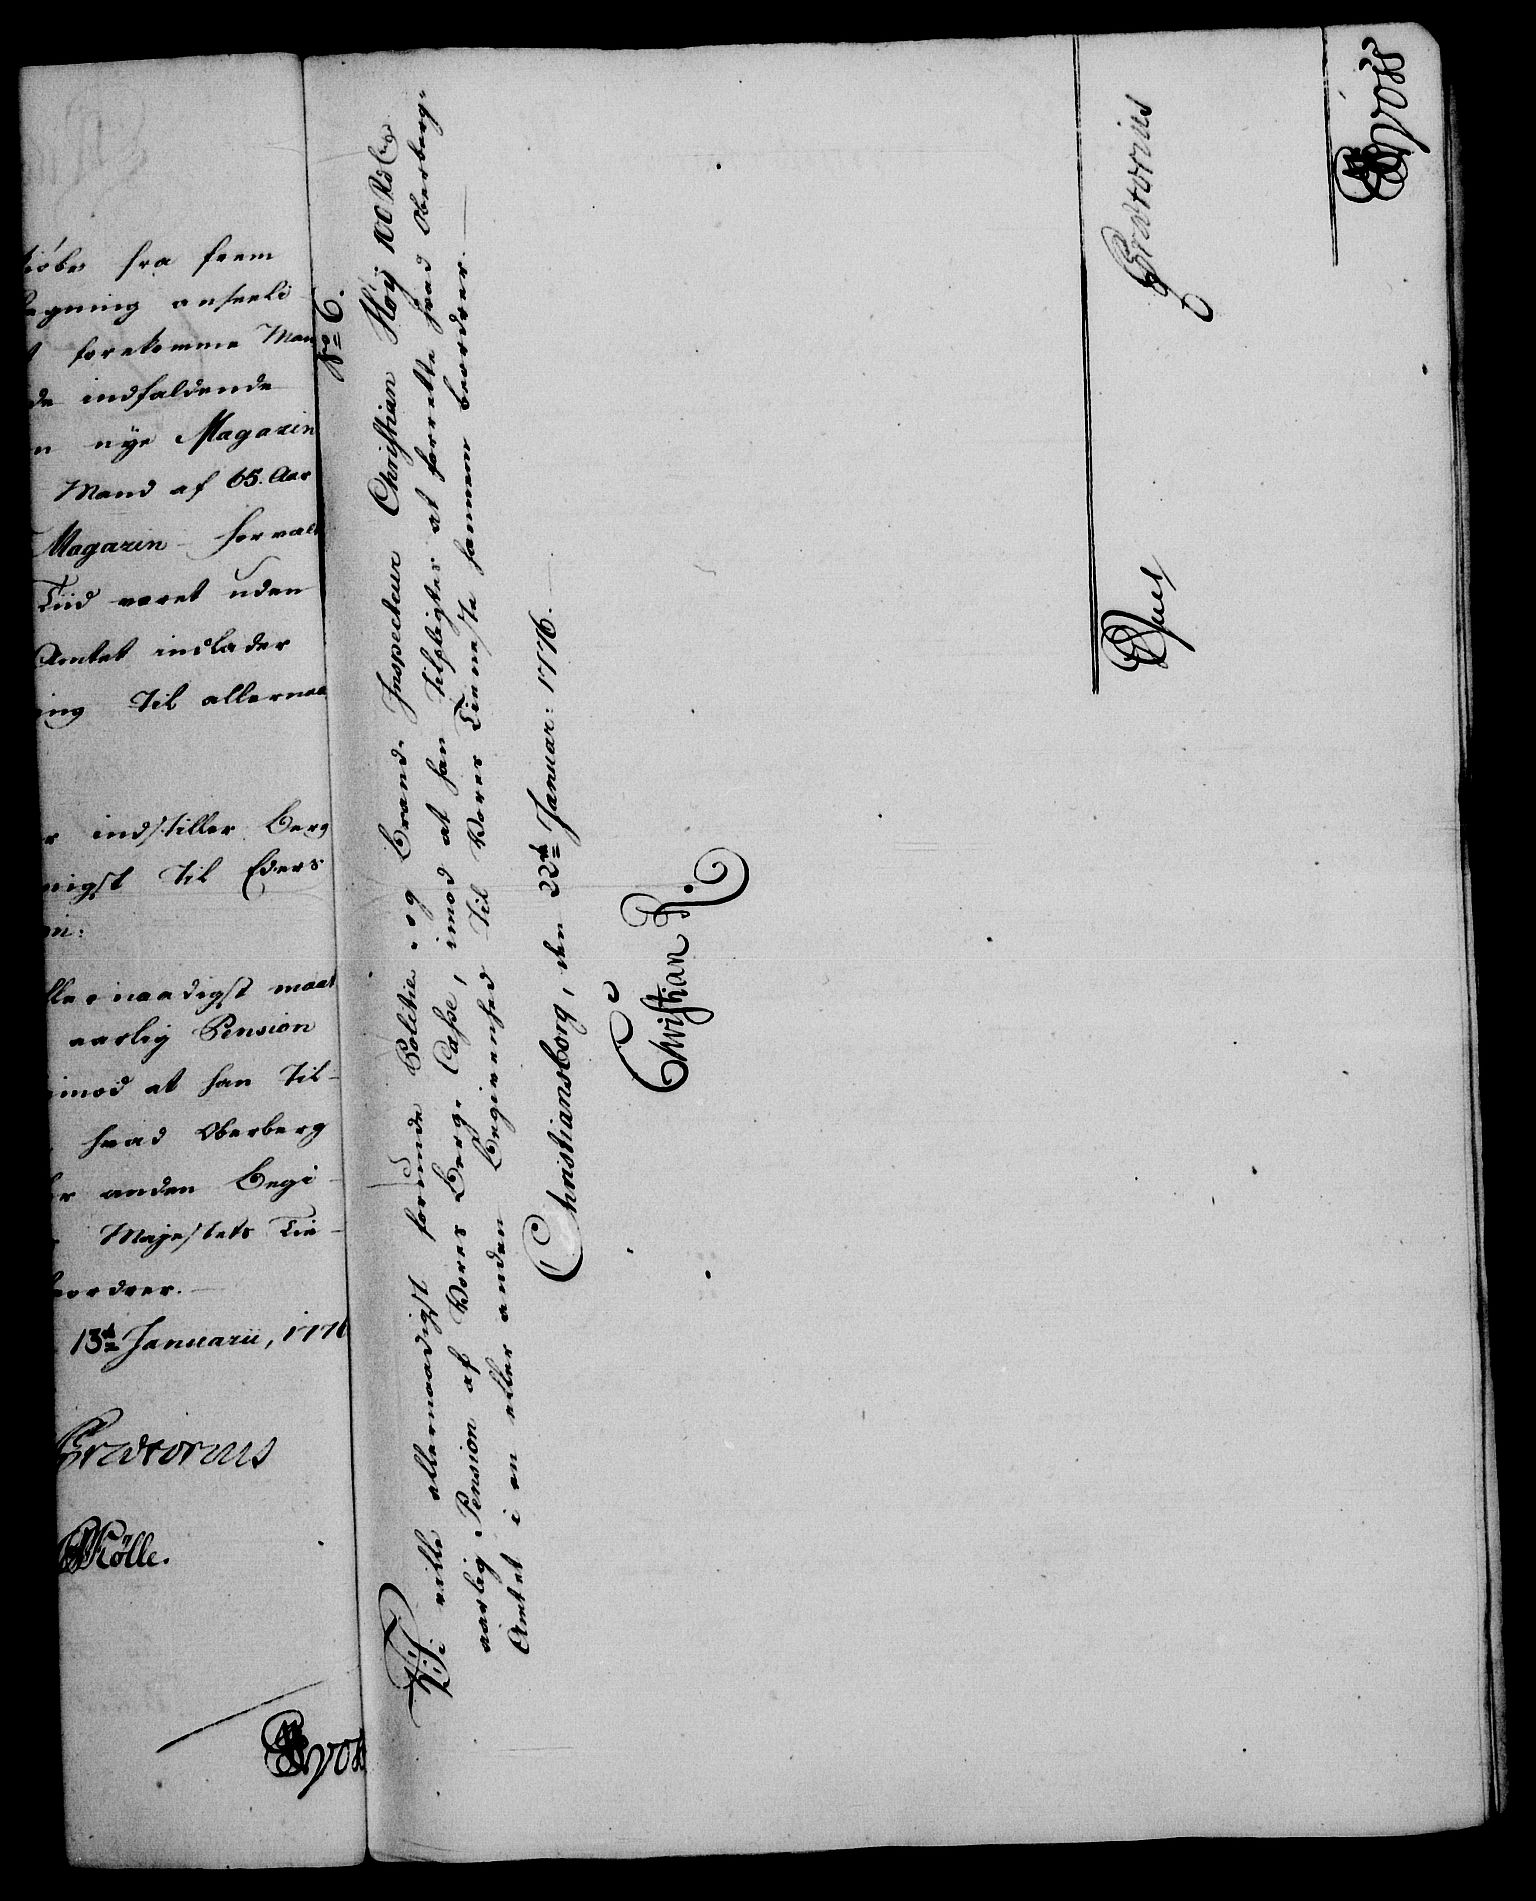 fra frem
anseeli
forekomme Man
indfaldende
nye Magazin
Mand af 65. Aar
Magazin-forval
Tiid været uden
Amtet indlader
Til allernaa
indstiller Berg
nigst til Eders
allernaadigst maat
aarlig Pension
imod at han Til-
hvad Oberberg
anden Begi-
Majestets Tie-
beordrer.
13de Januarii, 1776
Prætorius
Kölle.
Voss
No 6.
Vi ville allernaadigst forunde Politie- og Brand-Inspecteur Christian Høy 100 Rd
aarlig Pension af Vores Berg-Casse, imod at han tilpligtes at forrette hvad Oberberg-
Amtet i en eller anden Begivenhed til Vores Tieneste hannem beordrer.
Christiansborg, den 22de Januar: 1776.
Christian R.
Juel
Prætorius
Voss